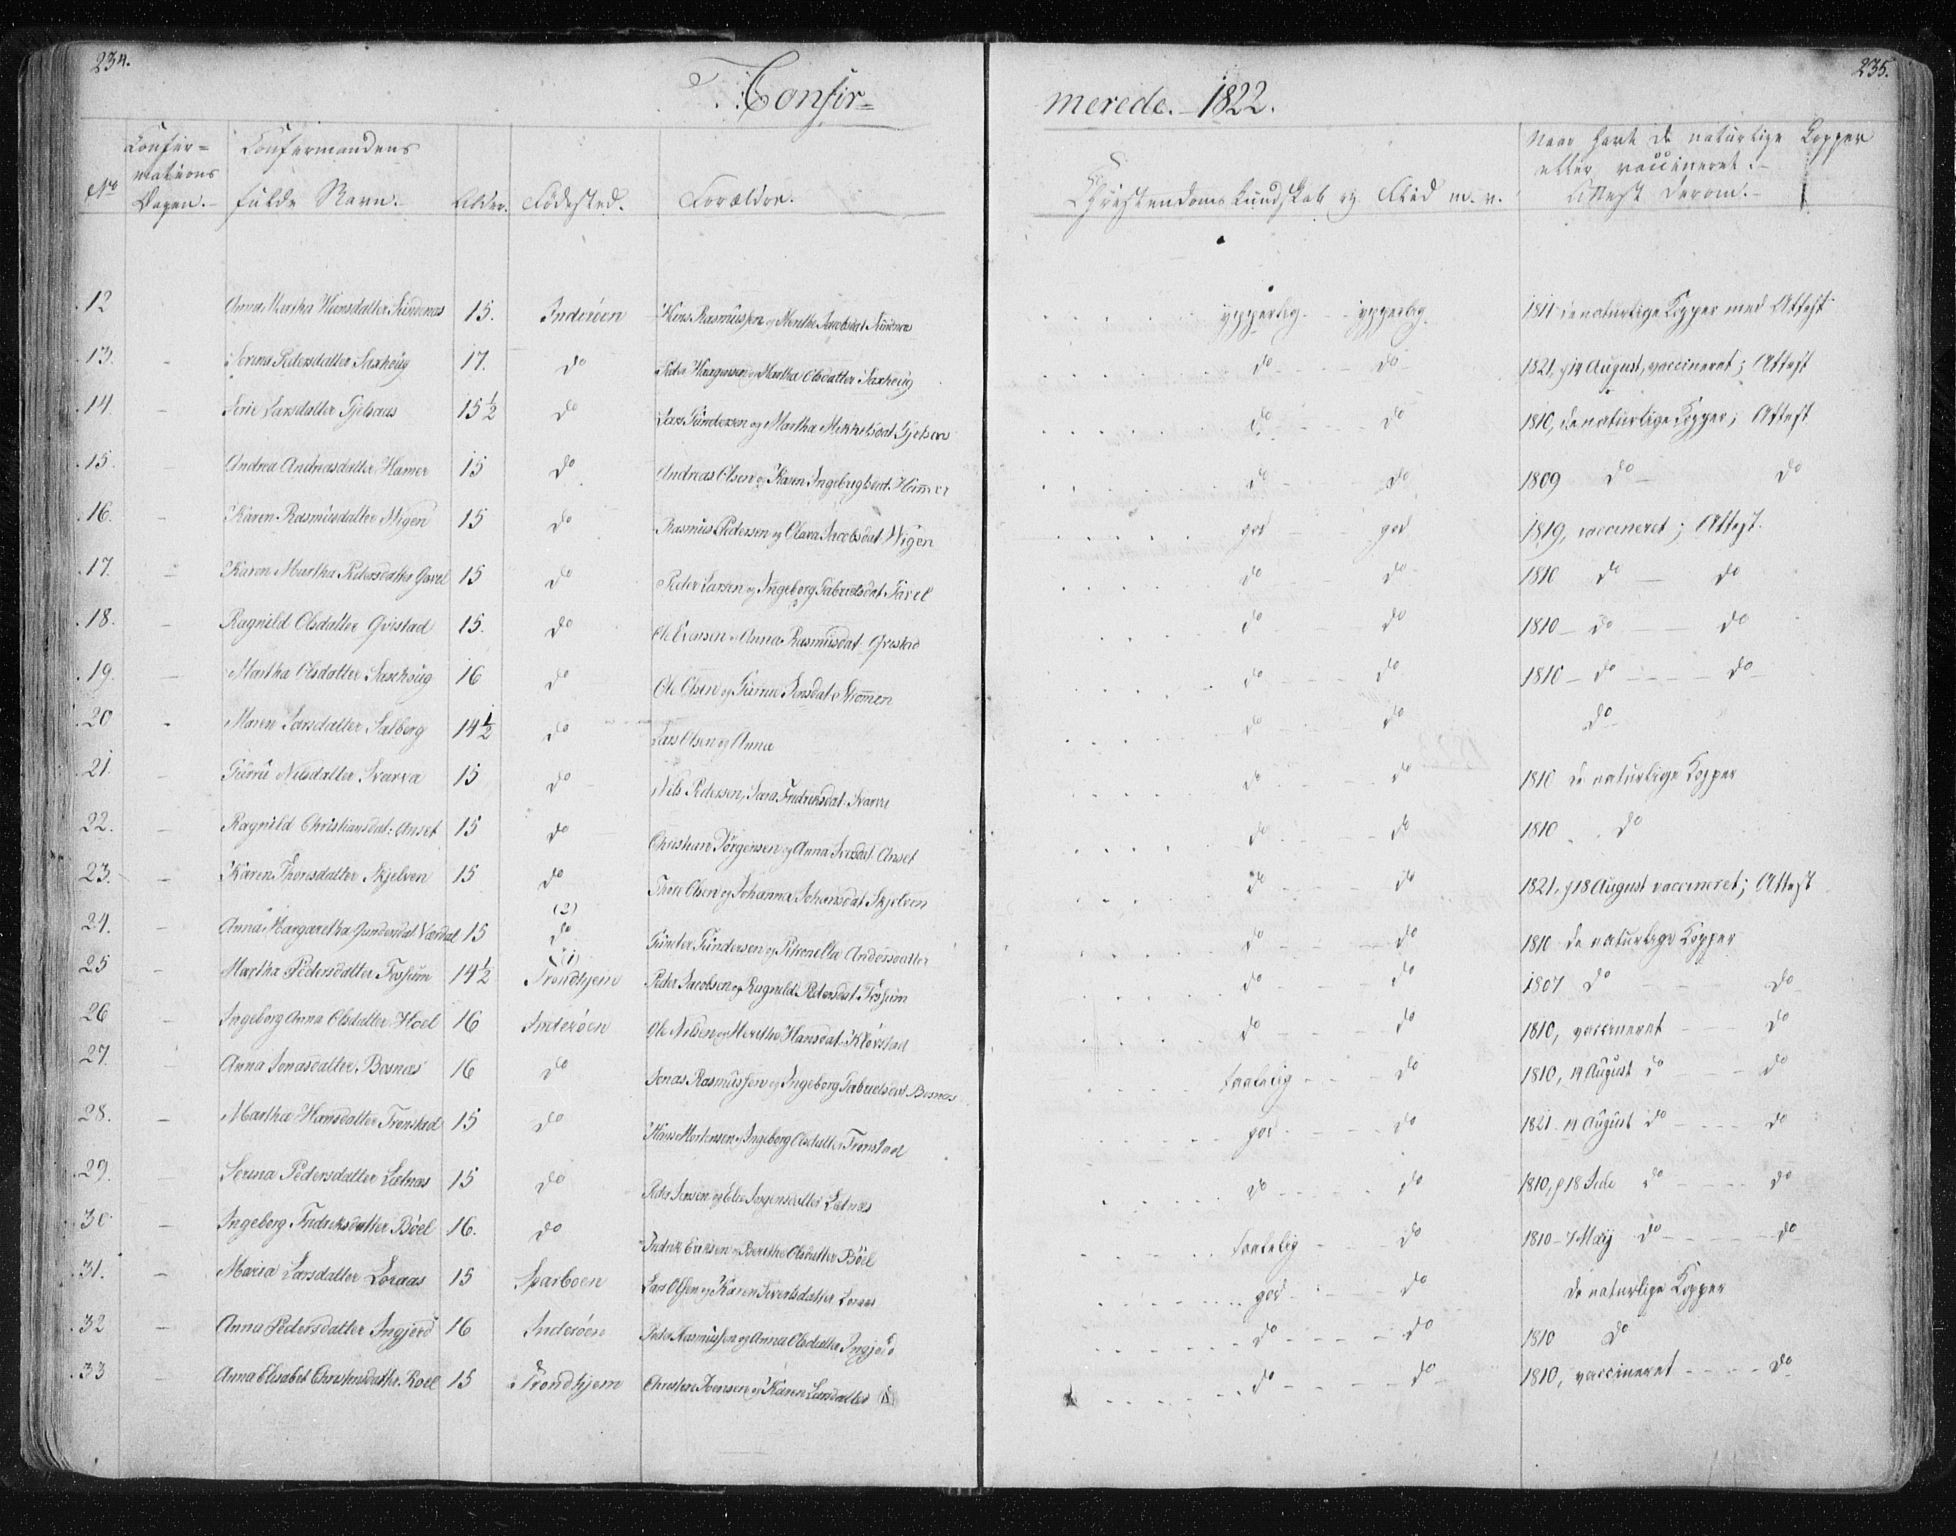 234.
235.
Confir-
merede. 1822.
No
Confir=
mations
Dagen.
Confirmandens
fulde Navn.
Alder.
Födested.
Forældre.
Christendoms Kundskab og Flid m. v.
Naar havt de naturlige Kopper
eller vaccineret.
Attest derom.
12 Anna Martha Hansdatter Sundnæs 15. Inderöen Hans Rasmussen og Merethe Jacobsdat. Sundnæs ypperlig ypperlig 1811 de naturlige Kopper med Attest
13. Serina Pedersdatter Saxhoug 17. do Peder Haagensen og Martha Olsdatter Saxhoug do do 1821, d 14 August, vaccineret; Attest
14. Larsdatter 15½ do Lars Gundersen og Martha Mikkelsdat. do do 1810, de naturlige Kopper; Attest
15. Andrea Andreasdatter Hamer 15 do Andreas Olsen og Karen Ingebrigtsdat. Hammer do do 1809 do do
16. Karen Rasmusdatter Wigen 15 do Rasmus Pedersen og Olava Jacobsdat. Wigen god god 1819, vaccineret; Attest.
17. Karen Martha Pedersdatter Gavel 15 do Peder Larsen og Ingeborg Gabrielsdat. Gavel do do 1810 do do
18. Ragnild Olsdatter Qvistad 15. do Ole Evensen Anna Rasmusdat. Qvistad do do 1810 do do
19. Martha Olsdatter Saxhoug 16 do Ole Olsen og Guru Jensdat. Strömmen do do 1810 do do
20 Maren Larsdatter Salberg 14½ do Lars Olsen og Anna do do do
21. Guru Nilsdatter Svarva 15 do Nils Pedersen, Sara Fredriksdat. Svarva do do 1810 de naturlige Kopper
22. Ragnild Christiansdat. Anset 15 do Christian Jörgensen og Anna Anset do do 1810 do
23. Karen Thoresdatter Skjelven 15 do Thore Olsen og Johanna Johansdat. Skjelven do do 1821, d 18 August vaccineret; Attest
24. Anna Margaretha Gundersdat. Værdal 15 (2) do Gunder Gundersen og Petronella Andersdatter do do 1810 de naturlige Kopper
25 Martha Pedersdatter Fossum 14½ (1) Trondhjem Peder Jacobsen og Ragnild Pedersdat. Fossum do do 1807 do do
26 Ingeborg Anna Olsdatter Hoel 16 Inderöen Ole Nilsen og Merethe Hansdat. Klövstad do do 1810, vaccineret do
27. Anna Jonasdatter Bosnæs 16 do Jonas Rasmussen og Ingeborg Gabrielsdat. Bosnæs taalelig do 1810, 14 August do do
28. Martha Hansdatter Tronstad 15 do Hans Mortensen og Ingeborg Olsdatter Tronstad god do 1821 14 August do do
29. Serina Pedersdatter Letnæs 15 do Peder Jensen og Elen Jörgensdatter Letnæs do do 1810, d 18 Jule do do
30 Ingeborg Fredriksdatter Böel 16. do Fredrik Eriksen og Berethe Olsdatter Böel taalelig do 1810 7 Maij do do
31. Maria Larsdatter Loraas 15 Sparboen Lars Olsen og Karen Sivertsdatter Loraas god do de naturlige Kopper
32 Anna Pedersdatter Ingjerd 16 Inderöen Peder Rasmussen og Anna Olsdatter Ingjerd do do 1810 do
33 Anna Elisabet Christensdatter Roel 15 Trondhjem Christen Jvensen og Karen Larsdatter do do 1810, vaccineret do